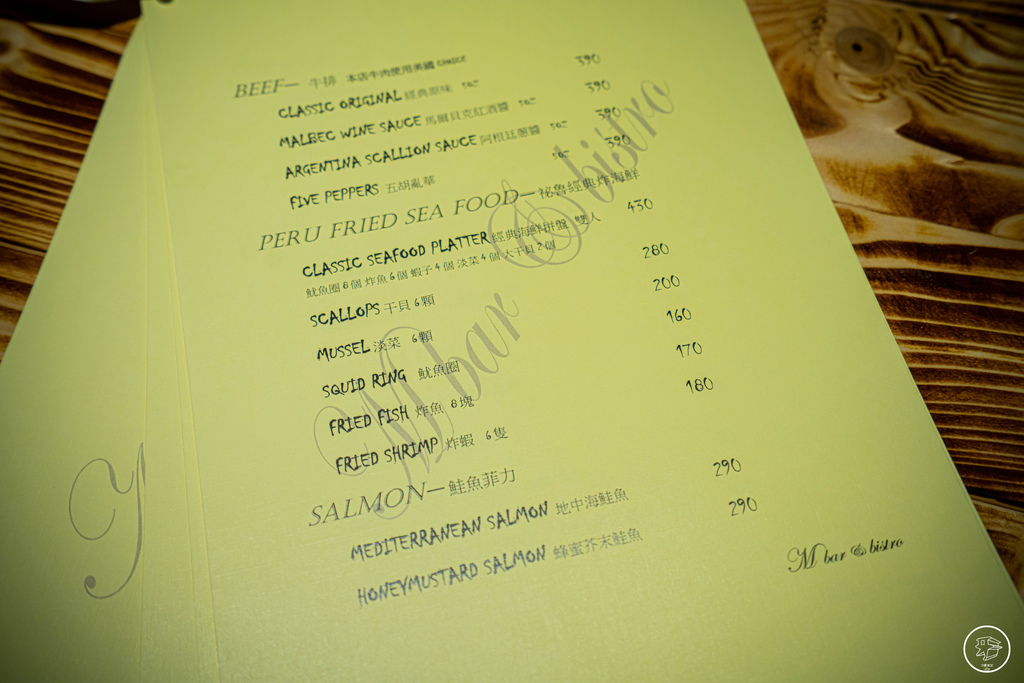 BEEF— 牛排 本店牛肉使用美國 CHOICE
CLASSIC ORIGINAL 經典原味 5OZ 390
MALBEC WINE SAUCE 馬爾貝克紅酒醬 5OZ 390
ARGENTINA SCALLION SAUCE 阿根廷蔥醬 5OZ 390
FIVE PEPPERS 五胡亂華 5OZ 390
PERU FRIED SEA FOOD— 祕魯經典炸海鮮
CLASSIC SEAFOOD PLATTER 經典海鮮拼盤 雙人 430
魷魚圈 8 個 炸魚 6 個 蝦子 4 個 淡菜 4 個 大干貝 2 個
SCALLOPS 干貝 6 顆 280
MUSSEL 淡菜 6 顆 200
SQUID RING 魷魚圈 160
FRIED FISH 炸魚 8 塊 170
FRIED SHRIMP 炸蝦 6 隻 180
SALMON— 鮭魚菲力
MEDITERRANEAN SALMON 地中海鮭魚 290
HONEYMUSTARD SALMON 蜂蜜芥末鮭魚 290
M bar & bistro
M bar & bistro